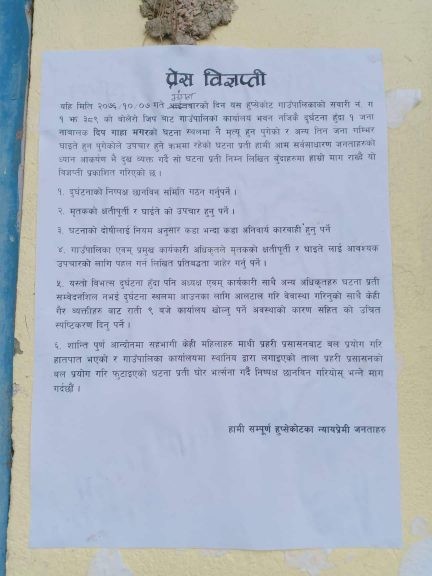 प्रेस विज्ञप्ती
यहि मिति २०७६/१०/०७ गते आईतबारको दिन यस हुप्सेकोट गाउँपालिकाको सवारी नं. ग
१ झ ३८९ को बोलेरो जिप बाट गाउँपालिकाको कार्यालय भवन नजिकै दुर्घटना हुँदा १ जना
नाबालक दिप गाहा मगरको घटना स्थलमा नै मृत्यू हुन पुगेको र अन्य तिन जना गम्भिर
घाइते हुन पुगेकोले उपचार हुने क्रममा रहेको घटना प्रती हामी आम सर्वसाधारण जनताहरुको
ध्यान आकर्षण भै दुख व्यक्त गर्दै सो घटना प्रती निम्न लिखित बुँदाहरुमा हाम्रो माग राख्दै यो
विज्ञप्ती प्रकाशित गरिएको छ ।
१. दुर्घटनाको निष्पक्ष छानविन समिति गठन गर्नुपर्ने ।
२. मृतकको क्षतीपूर्ती र घाईते को उपचार हुनु पर्ने ।
३. घटनाको दोषीलाई नियम अनुसार कडा भन्दा कडा अनिवार्य कारबाही हुनु पर्ने
४. गाउँपालिका एवम् प्रमुख कार्यकारी अधिकृतले मृतकको क्षतीपूर्ती र घाइते लाई आवश्यक
उपचारको लागि पहल गर्न लिखित प्रतिबद्धता जाहेर गर्नु पर्ने ।
५. यस्तो विभत्स दुर्घटना हुँदा पनि अध्यक्ष एबम् कार्यकारी साथै अन्य अधिकृतहरु घटना प्रती
सम्वेदनशिल नभई दुर्घटना स्थलमा आउनका लागि आलटाल गरि बेवास्था गरिनुको साथै केही
गैर व्यक्तीहरु बाट राती ९ बजे कार्यालय खोल्नु पर्ने अवस्थाको कारण सहित को उचित
स्पष्टिकरण दिनु पर्ने ।
६. शान्ति पुर्ण आन्दोनमा सहभागी केही महिलाहरु माथी प्रहरी प्रसासनबाट बल प्रयोग गरि
हातपात भएको र गाउँपालिका कार्यालयमा स्थानिय द्वारा लगाइएको ताला प्रहरी प्रसासनको
बल प्रयोग गरि फुटाइएको घटना प्रती घोर भर्त्सना गर्दै निष्पक्ष छानविन गरियोस् भन्ने माग
गर्दछौं ।
हामी सम्पूर्ण हुप्सेकोटका न्यायप्रेमी जनताहरु